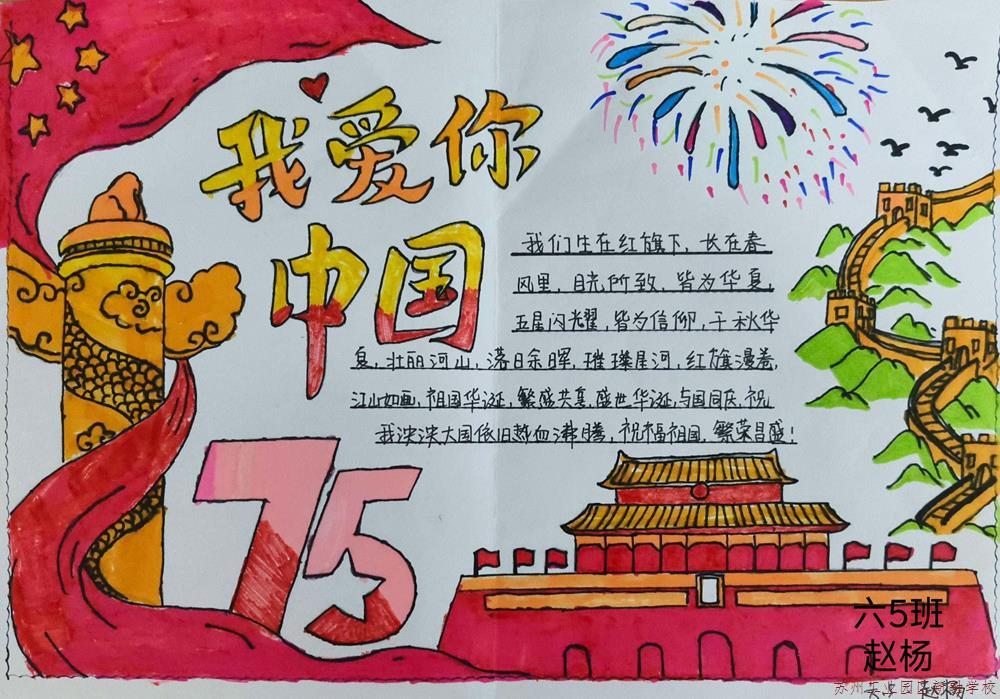 我爱你
中国
我们生在红旗下，长在春
风里，目光所致，皆为华夏，
五星闪光耀，皆为信仰，千秋华
夏，壮丽河山，落日余晖，璀璨星河，红旗漫卷，
江山如画，祖国华诞，繁盛共享，盛世华诞，与国同庆，祝
我泱泱大国依旧热血沸腾，祝福祖国，繁荣昌盛！
75
六5班
赵杨
苏州工业园区学校